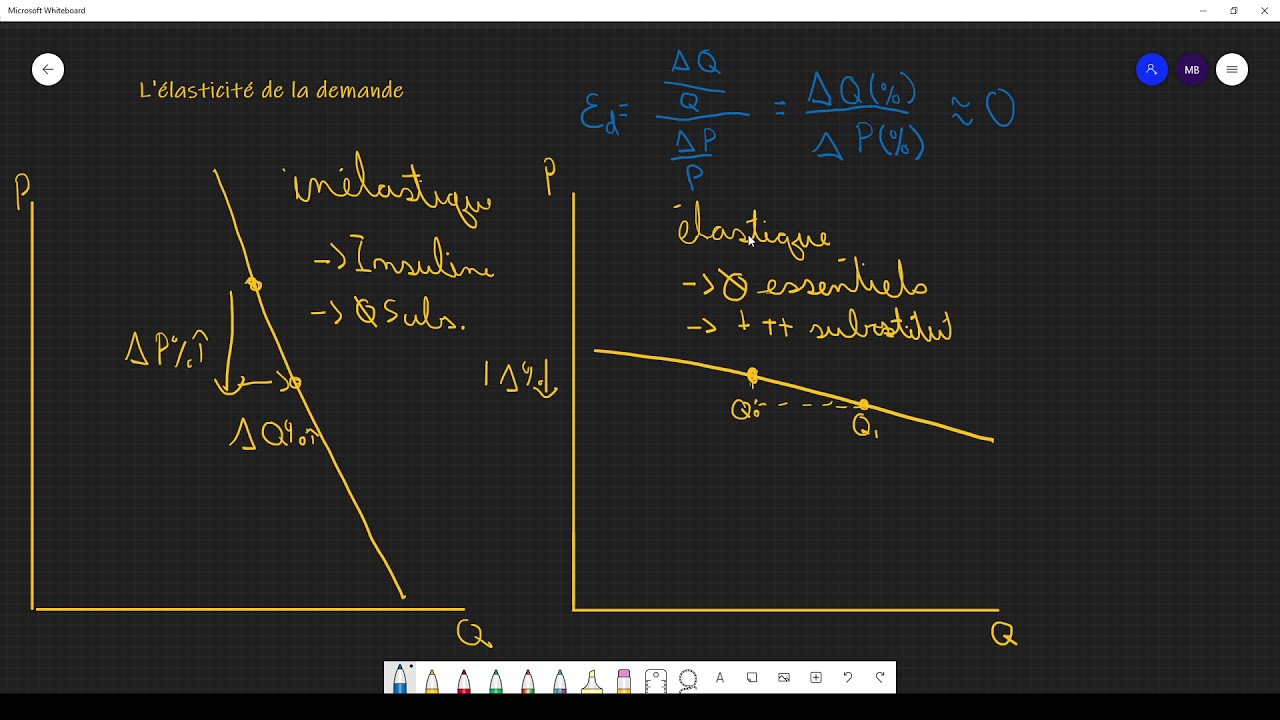 Microsoft Whiteboard
MB
L'élasticité de la demande
εd = (ΔQ/Q)/(ΔP/P) = ΔQ(%)/ΔP(%) ≈≈ 0
P
inélastique
-> Insuline
-> Ø Subs.
ΔP%↑
ΔQ%↑
Q
P
élastique
-> Ø essentiels
-> + ++ substitut
|Δ%↓
Q₀
Q₁
Q
A